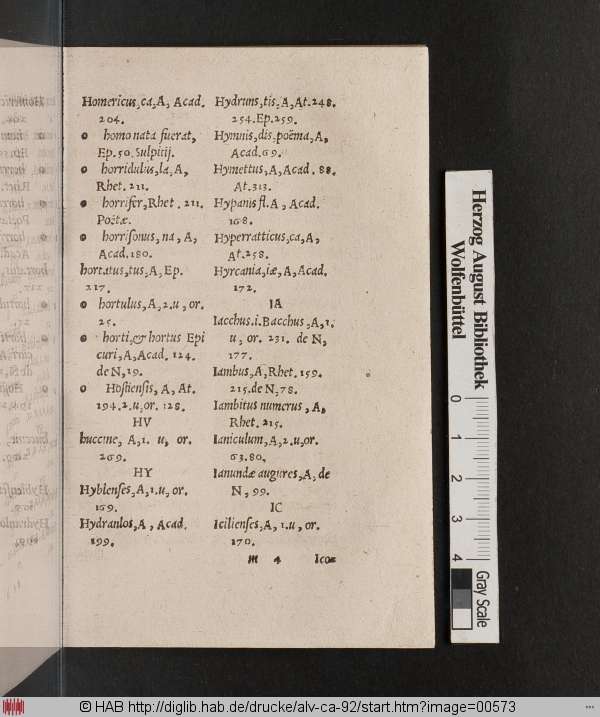 Homericus,ca,A, Acad.
204.
o homo nata fuerat,
Ep.50.Sulpitij.
o horridulus,la,A,
Rhet. 211.
o horrifer,Rhet. 211.
Poëtæ.
o horrisonus,na, A,
Acad.180.
hortatus,tus,A,Ep.
217.
o hortulus,A,2.u, or.
25.
o horti,& hortus Epi
curi,A,Acad. 124.
de N,19.
o Hostiensis, A, At.
194.2.u,or. 128.
HV
huccine, A,1. u, or.
269.
HY
Hyblenses,A,1.u,or.
169.
Hydranlos,A, Acad.
199.
Hydruns,tis,A,At.248.
254.Ep.259.
Hymnis,dis,poëma,A,
Acad.69.
Hymettus,A,Acad. 88.
At.313.
Hypanis fl.A, Acad.
168.
Hyperratticus,ca,A,
At.258.
Hyrcania,iæ,A,Acad.
172.
IA
Iacchus.i.Bacchus,A,1.
u, or. 231. de N,
177.
Iambus,A,Rhet. 159.
215.de N,78.
Iambitus numerus, A,
Rhet. 215.
Ianiculum,A,2.u,or.
63.80.
Ianundæ augures,A,de
N, 99.
IC
Icilienses,A, 1.u, or.
170.
m 4 Ico=
Herzog August Bibliothek
Wolfenbüttel
0 1 2 3 4
Gray Scale
© HAB http://diglib.hab.de/drucke/alv-ca-92/start.htm?image=00573